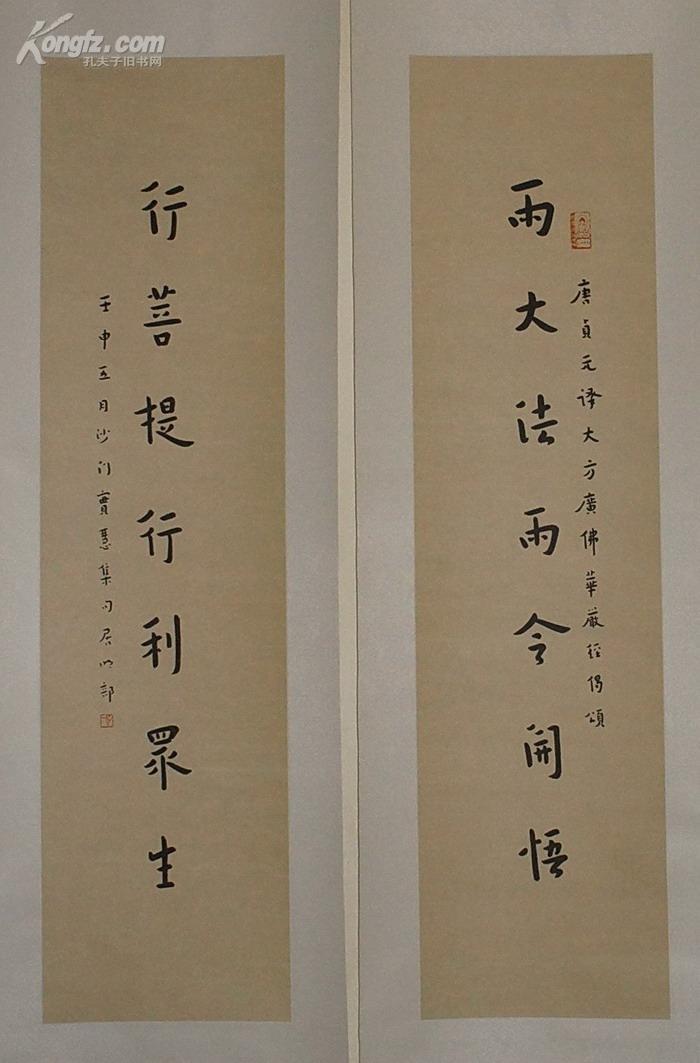 Kongfz.com
孔夫子旧书网
唐貞元譯大方廣佛華嚴經偈頌
雨大法雨令開悟
行菩提行利眾生
壬申五月沙門寶慧集句居